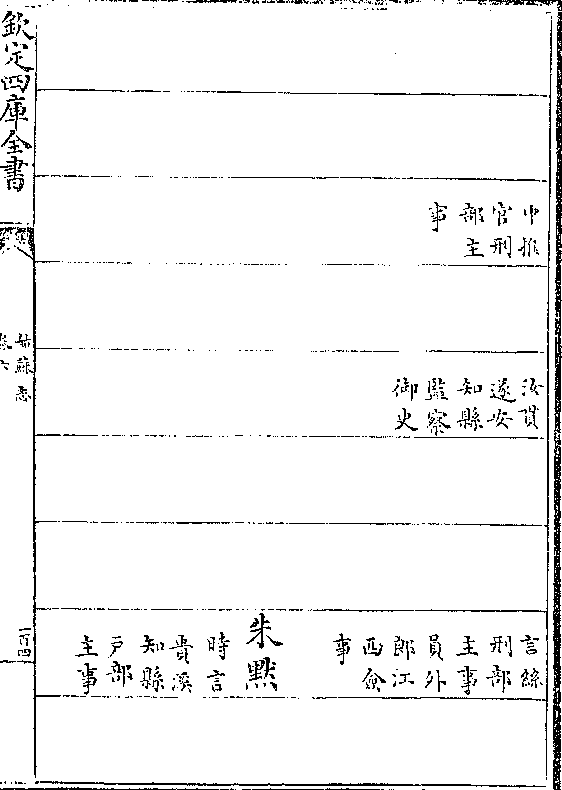 中推
官刑
部主
事
汝貫
遂安
知縣
監察
御史
言絲
刑部
主事
員外
郎江
西僉
事
朱黙
時言
貴溪
知縣
戸部
主事
欽定四庫全書
姑蘇志
卷六
一百四